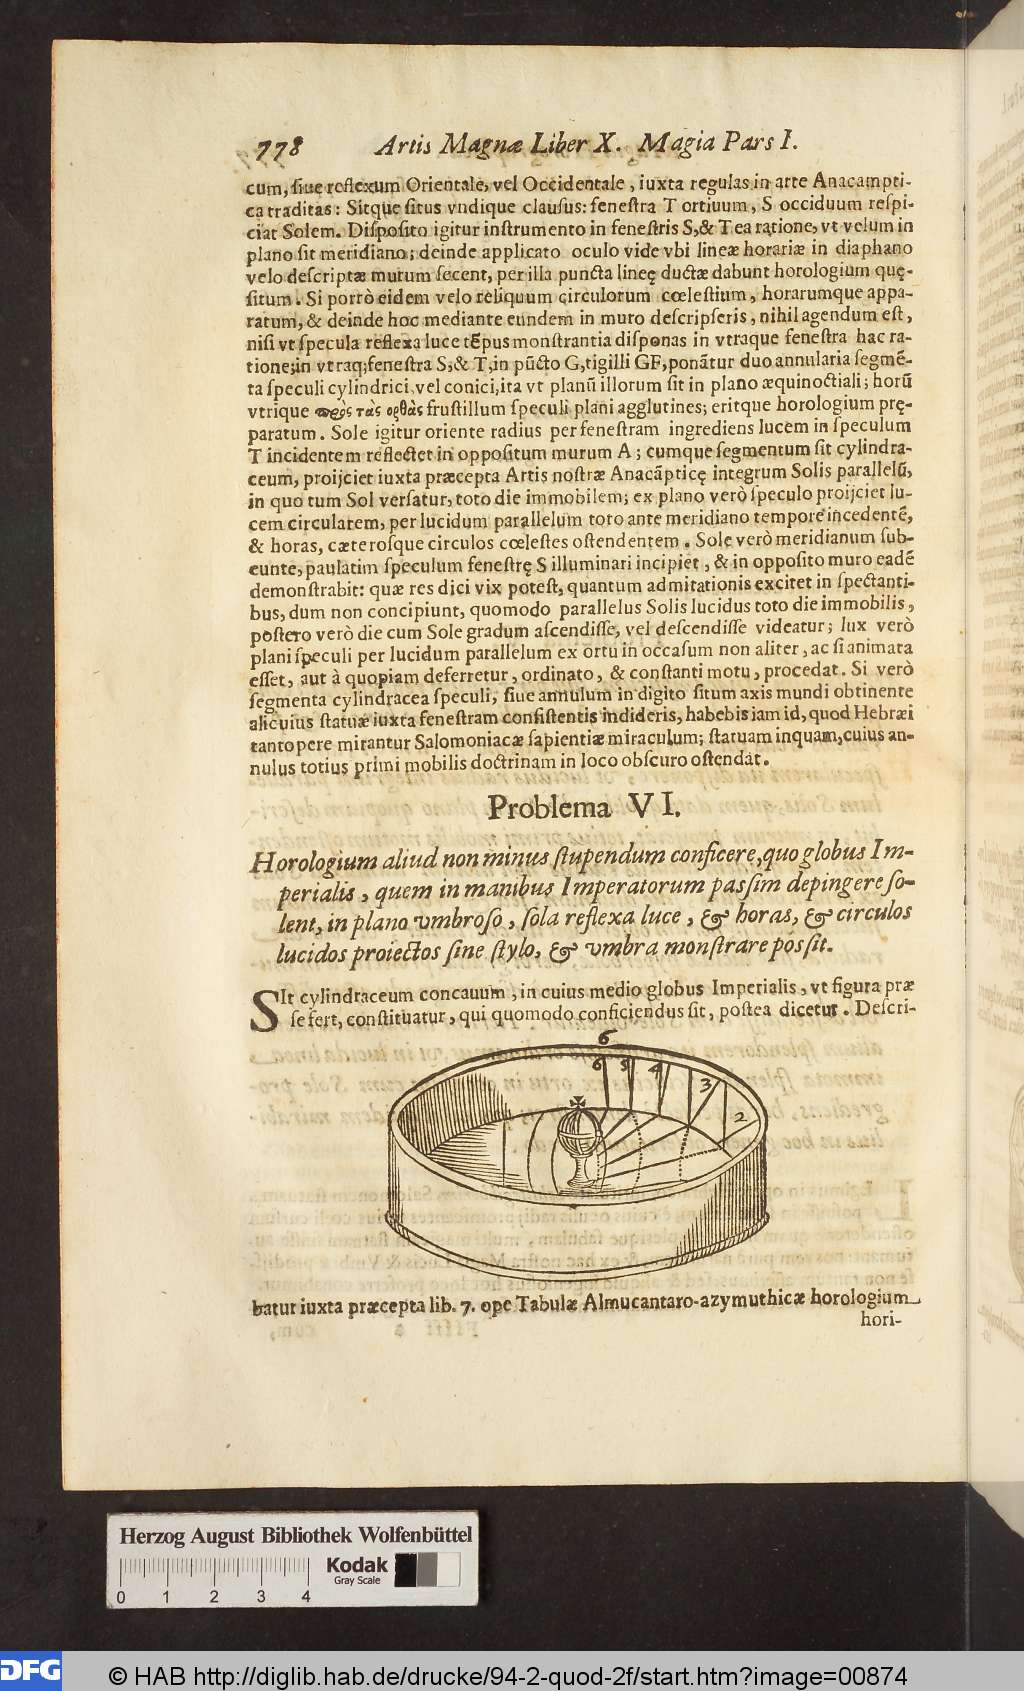 778 Artis Magnæ Liber X. Magia Pars I.
cum, ſiue reflexum Orientale, vel Occidentale, iuxta regulas in arte Anacampti-
ca traditas: Sitque ſitus vndique clauſus: feneſtra T ortiuum, S occiduum reſpi-
ciat Solem. Diſpoſito igitur inſtrumento in feneſtris S, & T ea ratione, vt velum in
plano ſit meridiano; deinde applicato oculo vide vbi lineæ horariæ in diaphano
velo deſcriptæ murum ſecent, per illa puncta lineę ductæ dabunt horologium quę-
ſitum. Si porrò eidem velo reliquum circulorum cœleſtium, horarumque appa-
ratum, & deinde hoc mediante eundem in muro deſcripſeris, nihil agendum eſt,
niſi vt ſpecula reflexa luce tẽpus monſtrantia diſponas in vtraque feneſtra hac ra-
tione; in vtraq; feneſtra S, & T, in pũcto G, tigilli GF, ponãtur duo annularia ſegmẽ-
ta ſpeculi cylindrici, vel conici, ita vt planũ illorum ſit in plano æquinoctiali; horũ
vtrique πρὸς τὰς ορθὰς fruſtillum ſpeculi plani agglutines; eritque horologium prę-
paratum. Sole igitur oriente radius per feneſtram ingrediens lucem in ſpeculum
T incidentem reflectet in oppoſitum murum A; cumque ſegmentum ſit cylindra-
ceum, proijciet iuxta præcepta Artis noſtræ Anacãpticę integrum Solis parallelũ,
in quo tum Sol verſatur, toto die immobilem; ex plano verò ſpeculo proijciet lu-
cem circularem, per lucidum parallelum toto ante meridiano tempore incedentẽ,
& horas, cæteroſque circulos cœleſtes oſtendentem. Sole verò meridianum ſub-
eunte, paulatim ſpeculum feneſtrę S illuminari incipiet, & in oppoſito muro eadẽ
demonſtrabit: quæ res dici vix poteſt, quantum admirationis excitet in ſpectanti-
bus, dum non concipiunt, quomodo parallelus Solis lucidus toto die immobilis,
poſtero verò die cum Sole gradum aſcendiſſe, vel deſcendiſſe videatur; lux verò
plani ſpeculi per lucidum parallelum ex ortu in occaſum non aliter, ac ſi animata
eſſet, aut à quopiam deferretur, ordinato, & conſtanti motu, procedat. Si verò
ſegmenta cylindracea ſpeculi, ſiue annulum in digito ſitum axis mundi obtinente
alicuius ſtatuæ iuxta feneſtram conſiſtentis indideris, habebis iam id, quod Hebræi
tantopere mirantur Salomoniacæ ſapientiæ miraculum; ſtatuam inquam, cuius an-
nulus totius primi mobilis doctrinam in loco obſcuro oſtendat.
Problema VI.
Horologium aliud non minus ſtupendum conficere, quo globus Im-
perialis, quem in manibus Imperatorum paſsim depingere ſo-
lent, in plano vmbroſo, ſola reflexa luce, & horas, & circulos
lucidos proiectos ſine ſtylo, & vmbra monſtrare poſsit.
SIt cylindraceum concauum, in cuius medio globus Imperialis, vt figura præ
ſe fert, conſtituatur, qui quomodo conficiendus ſit, poſtea dicetur. Deſcri-
6
6 5 4 3 2
batur iuxta præcepta lib. 7. ope Tabulæ Almucantaro-azymuthicæ horologium
hori-
Herzog August Bibliothek Wolfenbüttel
Kodak
Gray Scale
0 1 2 3 4
DFG
© HAB http://diglib.hab.de/drucke/94-2-quod-2f/start.htm?image=00874